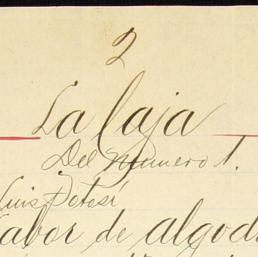 2
La laja
Del Numero 1.
Luis Potosí
Labor de algod